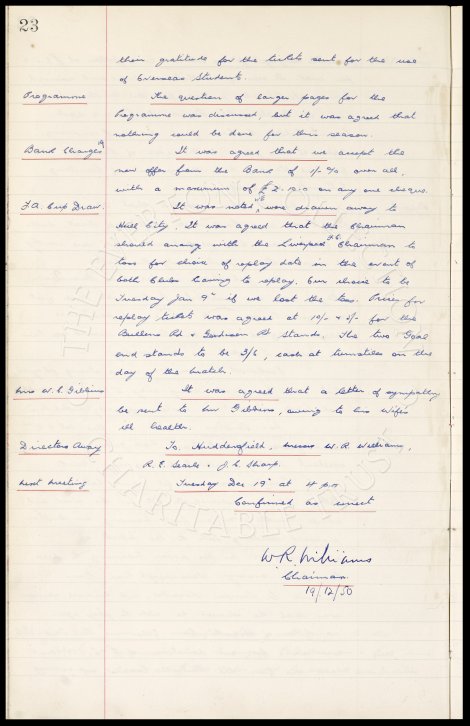 23
their gratitude for the tickets sent for the use
of Overseas Students
Programme
The question of larger pages for the
Programme was discussed, but it was agreed that
nothing could be done for this season.
Bank Charges
It was agreed that we accept the
new offer from the Bank of 1/- % over all,
with a maximum of £2.10.0 on any one cheque.
F.A. Cup Draw.
It was noted we were drawn away to
Hull City. It was agreed that the Chairman
should arrange with the Liverpool F.C. Chairman to
toss for choice of replay date in the event of
both Clubs having to replay. Our choice to be
Tuesday Jan 9th if we lost the toss. Prices for
replay tickets was agreed at 10/- & 5/- for the
Bullens Rd & Goodison Rd Stands. The two Goal
end stands to be 3/6, cash at turnstiles on the
day of the match.
Mrs W. C. Gibbins
It was agreed that a letter of sympathy
be sent to Mr Gibbins, owing to his wife's
ill health.
Directors Away
To Huddersfield, Messrs W. R. Williams,
R. E. Searle & J. C. Sharp.
Next Meeting
Tuesday Dec 19th at 4 pm
Confirmed as correct
W. R. Williams
Chairman.
19/12/50
CHARITABLE TRUST